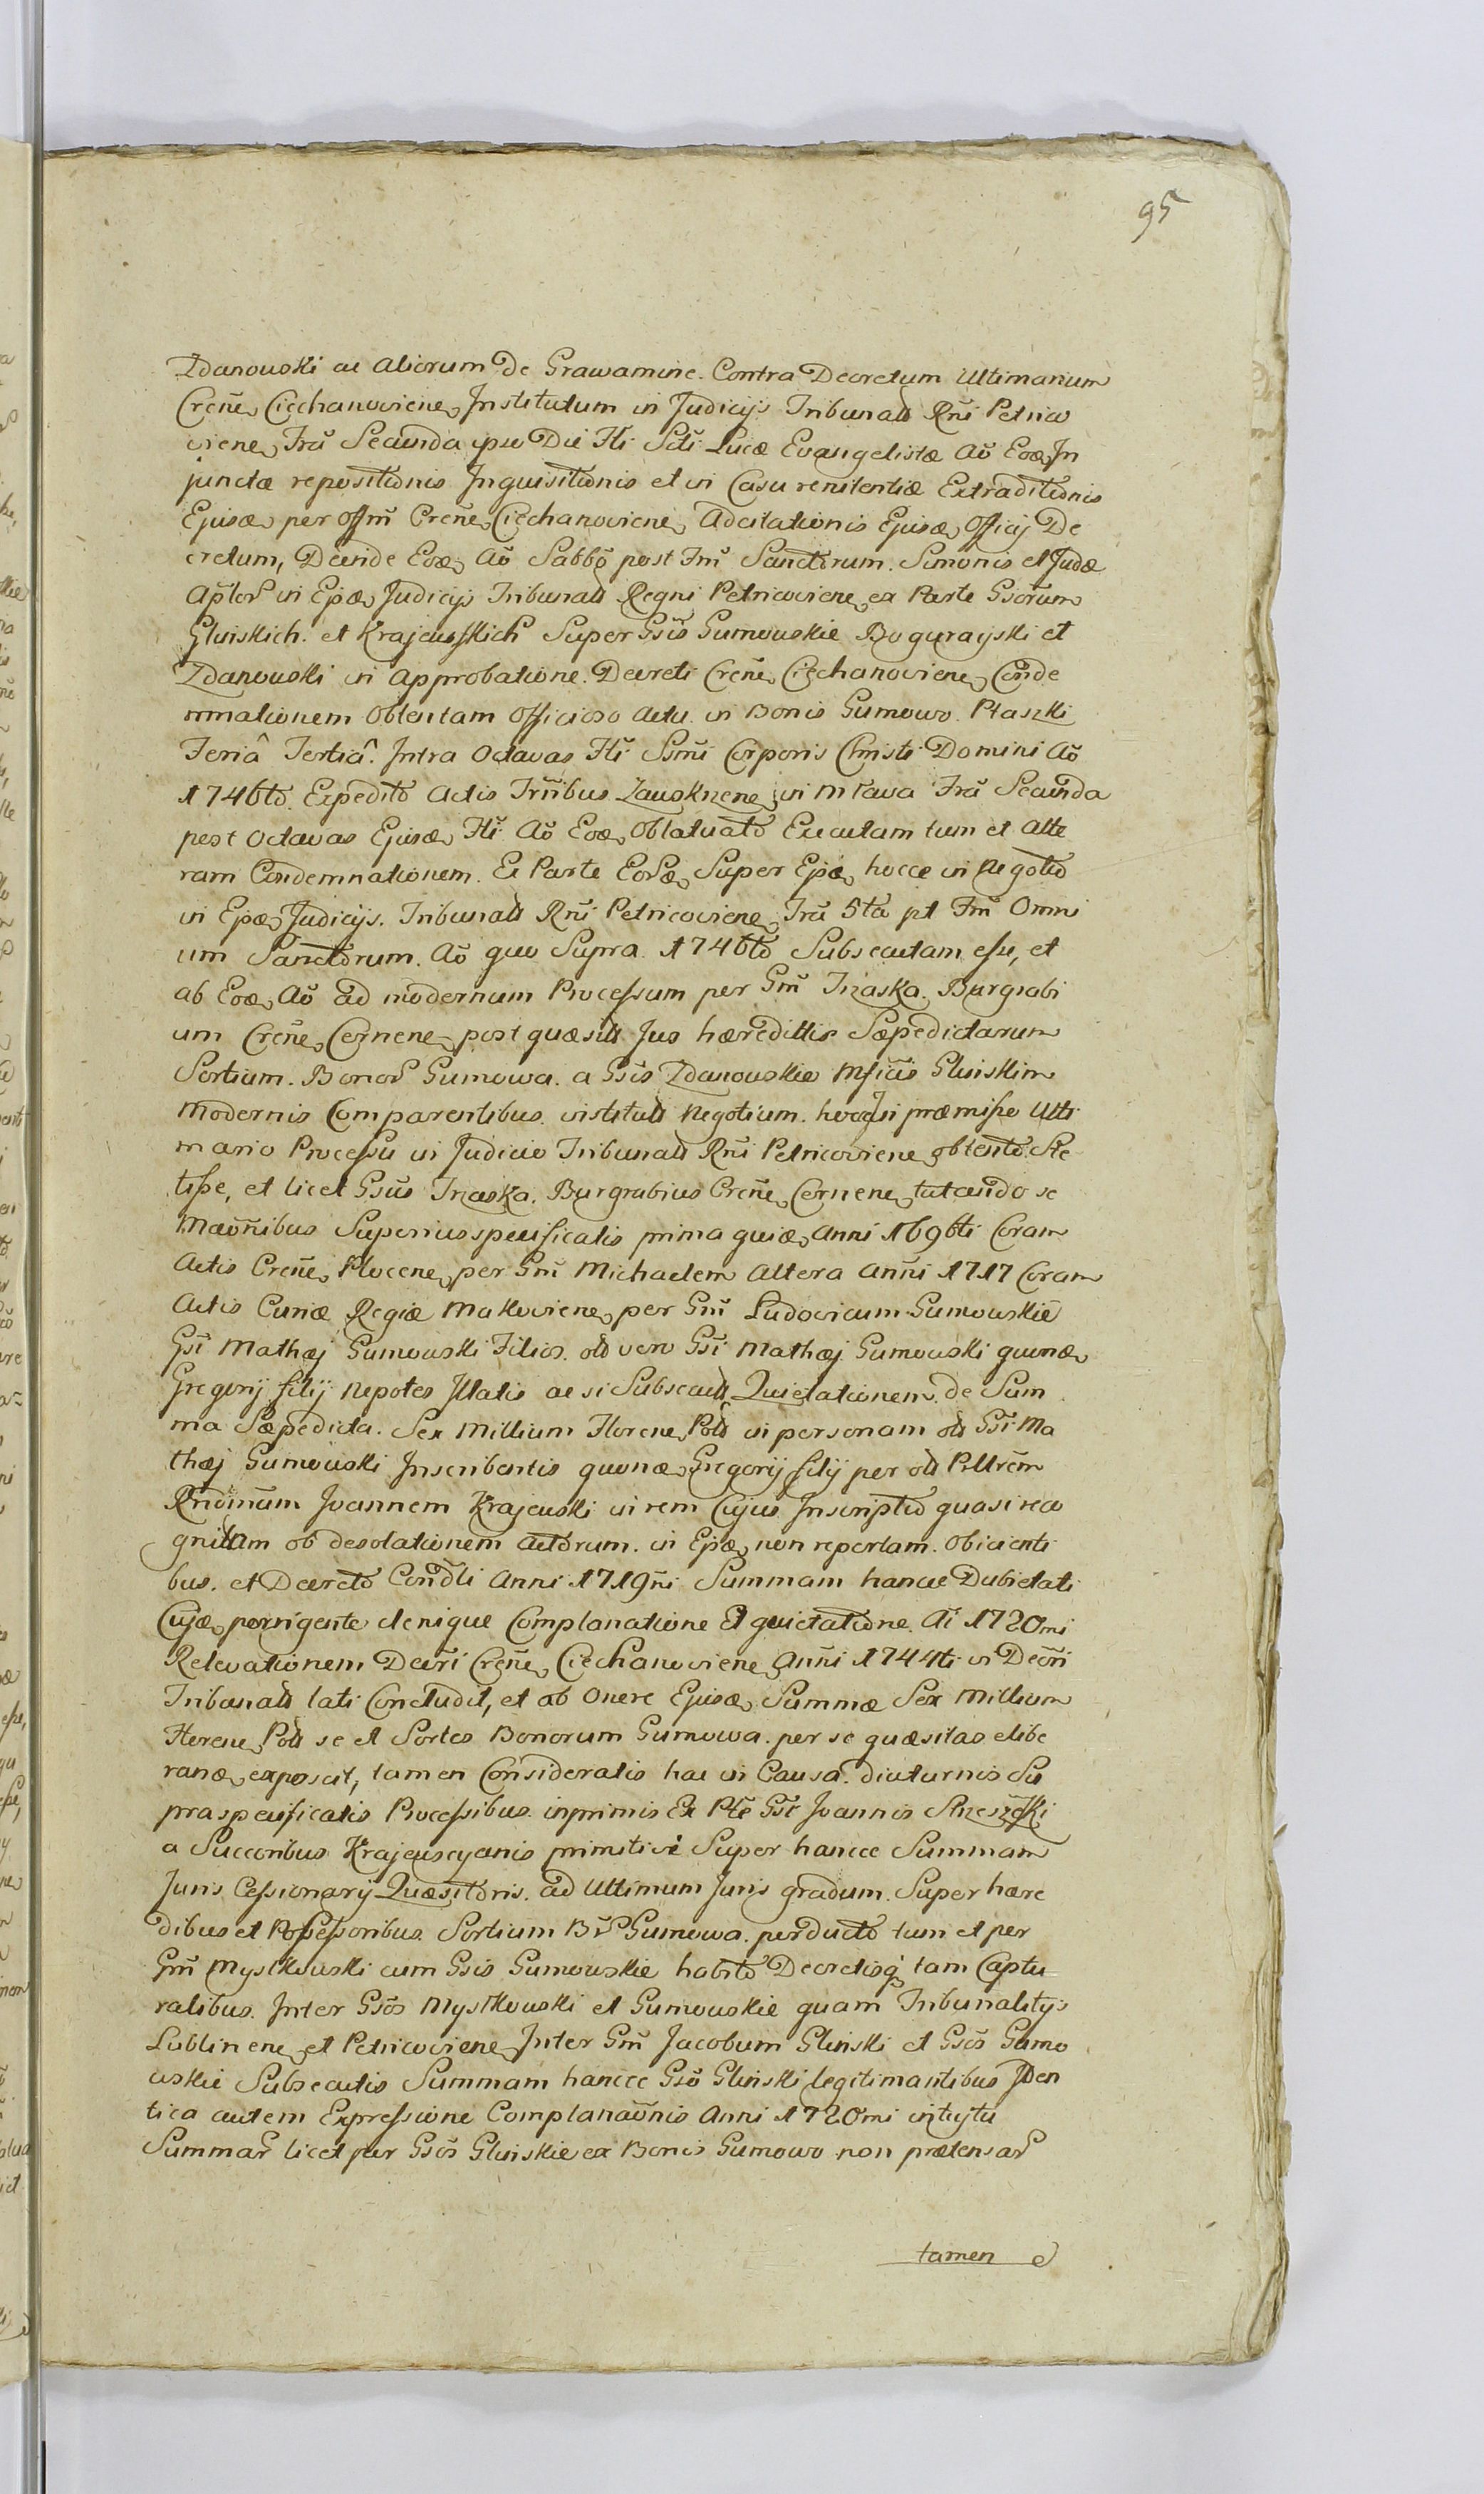 95
Zdanowski ac aliorum De Grawamine. Contra Decretum Ultimarium
Crcñe Ciechanoviene, Institutum in Judicijs Tribunal Rñi Petrico
viene, Frã Secunda ipso Die Fti Scti Lucæ Evangelistæ Aõ Eod In
junctæ repositionis Inquisitionis et in Casu renitentiæ Extraditionis
Ejusd per Offm̃ Crcñe Ciechanoviene, Adcitationis Ejusd Officij De
cretum, Deinde Eod Aõ Sabbõ post Fm̃ Sanctorum. Simonis et Judæ
Aptor in Ejsd Judicijs Tribunal Regni Petricoviene, ex Parte Gsorum
Glinskich. et Krajewskich Super Gsõs Gumowskie Boguraÿski et
Zdanowski in Approbatione. Decreti Crcñe Ciechanoviene, Conde
mnationem Obtentam Officioso Actu in Bonis Gumowo. Ptaszki
Feriâ Tertiâ. Intra Octavas Fti Ssm̃i Corporis Christi Domini Aõ
1746to. Expedito Actis Trr̃ibus Zauskrzene, in Mlava Frã Secunda
post Octavas Ejusd Fti Aõ Eod Oblatuato Executam tum et alte
ram Condemnationem. Ex Parte Eord Super Ejsd hocce in Negotio
in Ejsd Judicijs. Tribunal Rñi Petricoviene, Frã 5ta pt Fm̃ Omni
um Sanctorum. Aõ quo Supra 1746to Subsecutam esse, et
ab Eod Aõ ad modernum Processum per Gm̃ Trzaska. Burgrabi
um Crcñe Cernene, post quæsit Jus hæredittis Sæpedictarum
Sortium. Bonor Gumowa. a Gsis Zdanowskie Mficis Glinskim
Modernis Comparentibus. institut Negotium. hocqz in præmisso Ulti
mario Processu in Judicio Tribunal Rñi Petricoviene, obtento. Ste
tisse, et licet Gsus Trzaska. Burgrabius Crcñe Cernene, tutando se
Maõnibus Superius specificatis prima quid Anni 1696ti Coram
Actis Crcñe Plocene, per Gm̃ Michaelem Altera Anñi 1717 Coram
Actis Curiæ Regiæ Makoviene, per Gm̃ Ludovicum Gumowskie
Gsi Mathæj Gumowski Filios. ol vero Gsi Mathæj Gumowski quond
Gregorij filij Nepotes Illatis ac si Subsecut Quietationem. de Sum
ma Sæpedicta. Sex Millium Florene, Pol in personam ol Gsi Ma
thæj Gumowski Inscribentis quond Gregorij filij per ol Pllrem
Rndinum Joannem Krajewski in rem Cujus Inscriptio quasi reco
gnitam ob desolationem Actorum. in Ejsd non repertam. Obicienti
bus. et Decreto Condli Anni 1719ñi Summam hancce Dubietati
Cujd porrigente denique Complanatione Et quietatione. Ai 1720mi
Relevationem Decri Crcñe Ciechanoviene, Anñi 1744ti in Decri
Tribunal lati Concludit, et ab Onere Ejusd Summæ Sex Millium
Florene, Pol se et Sortes Bonorum Gumowa. per se quæsitas elibe
rand exposcit, tamen Consideratis hac in Causa. diuturnis Su
praspecificatis Processibus. inprimis Ex Pte Gsi Joannis Strzeszeski
a Succoribus Krajewscyanis primitivi Super hancce Summam
Juris Cessionarij Quæsitoris. ad Ultimum Juris gradum. Super hære
dibus et Possessoribus. Sortium Br Gumowa. perducto tum et per
Gm̃ Mystkowski cum Gsis Gumowskie habito Decretisq tam Captu
ralibus. Inter Gsõs Mystkowski et Gumowskie quam Tribunalitijs
Lublinene, et Petricoviene, Inter Gm̃ Jacobum Glinski et Gsõs Gumo
wskie Subsecutis Summam hancce Gsõ Glinski legitimantibus Iden
tica autem Expressione Complanaõnis Anni 1720mi intuytu
Summar licet per Gsõs Glinskie ex Bonis Gumowo non prætensar
tamen